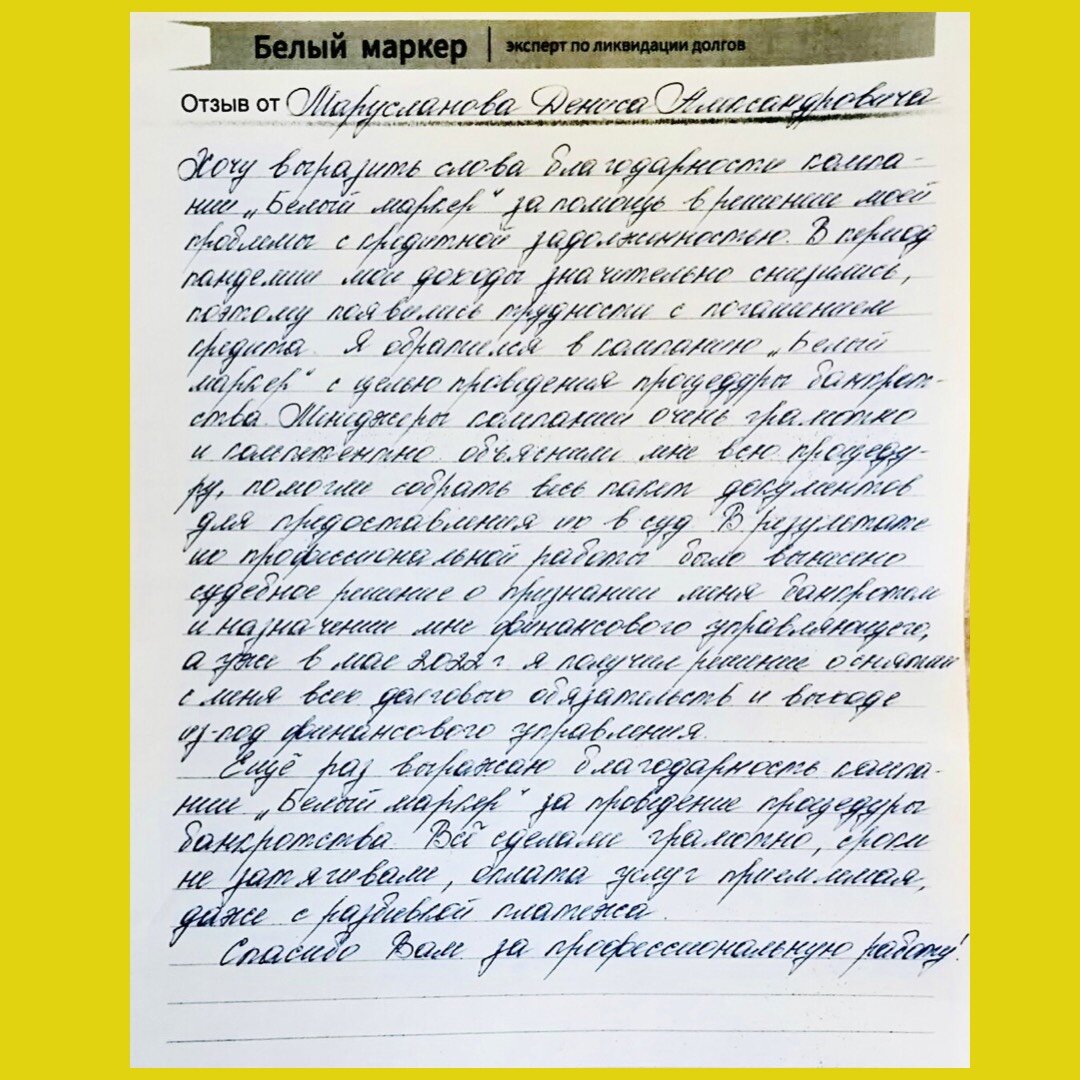 Белый маркер | эксперт по ликвидации долгов
Отзыв от Марусланова Дениса Александровича
Хочу выразить слова благодарности компа-
нии „Белый маркер" за помощь в решении моей
проблемы с кредитной задолженностью. В период
пандемии мои доходы значительно снизились,
поэтому появились трудности с погашением
кредита. Я обратился в компанию „Белый
маркер" с целью проведения процедуры банкрот-
ства. Менеджеры компании очень грамотно
и компетентно объяснили мне всю процеду-
ру, помогли собрать весь пакет документов
для предоставления их в суд. В результате
их профессиональной работы было вынесено
судебное решение о признании меня банкротом
и назначении мне финансового управляющего,
а уже в мае 2022 г. я получил решение о снятии
с меня всех долговых обязательств и выходе
из-под финансового управления.
Ещё раз выражаю благодарность компа-
нии „Белый маркер" за проведение процедуры
банкротства. Всё сделали грамотно, сроки
не затягивали, оплата услуг приемлемая,
даже с разбивкой платежа.
Спасибо Вам за профессиональную работу!